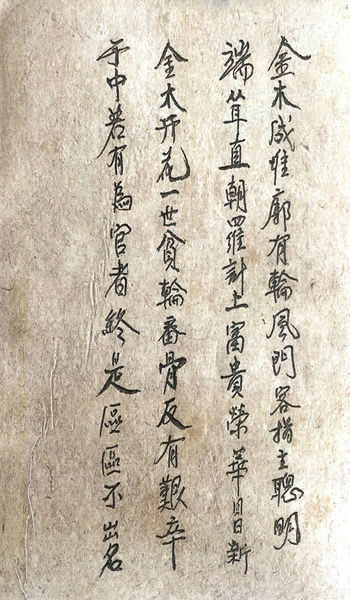 金木成惟廓有輪風門容指主聰明
端耸直朝羅計上富貴榮華日日新
金木开花一世貧輪番骨反有艱辛
于中若有為官者終是區區不出名